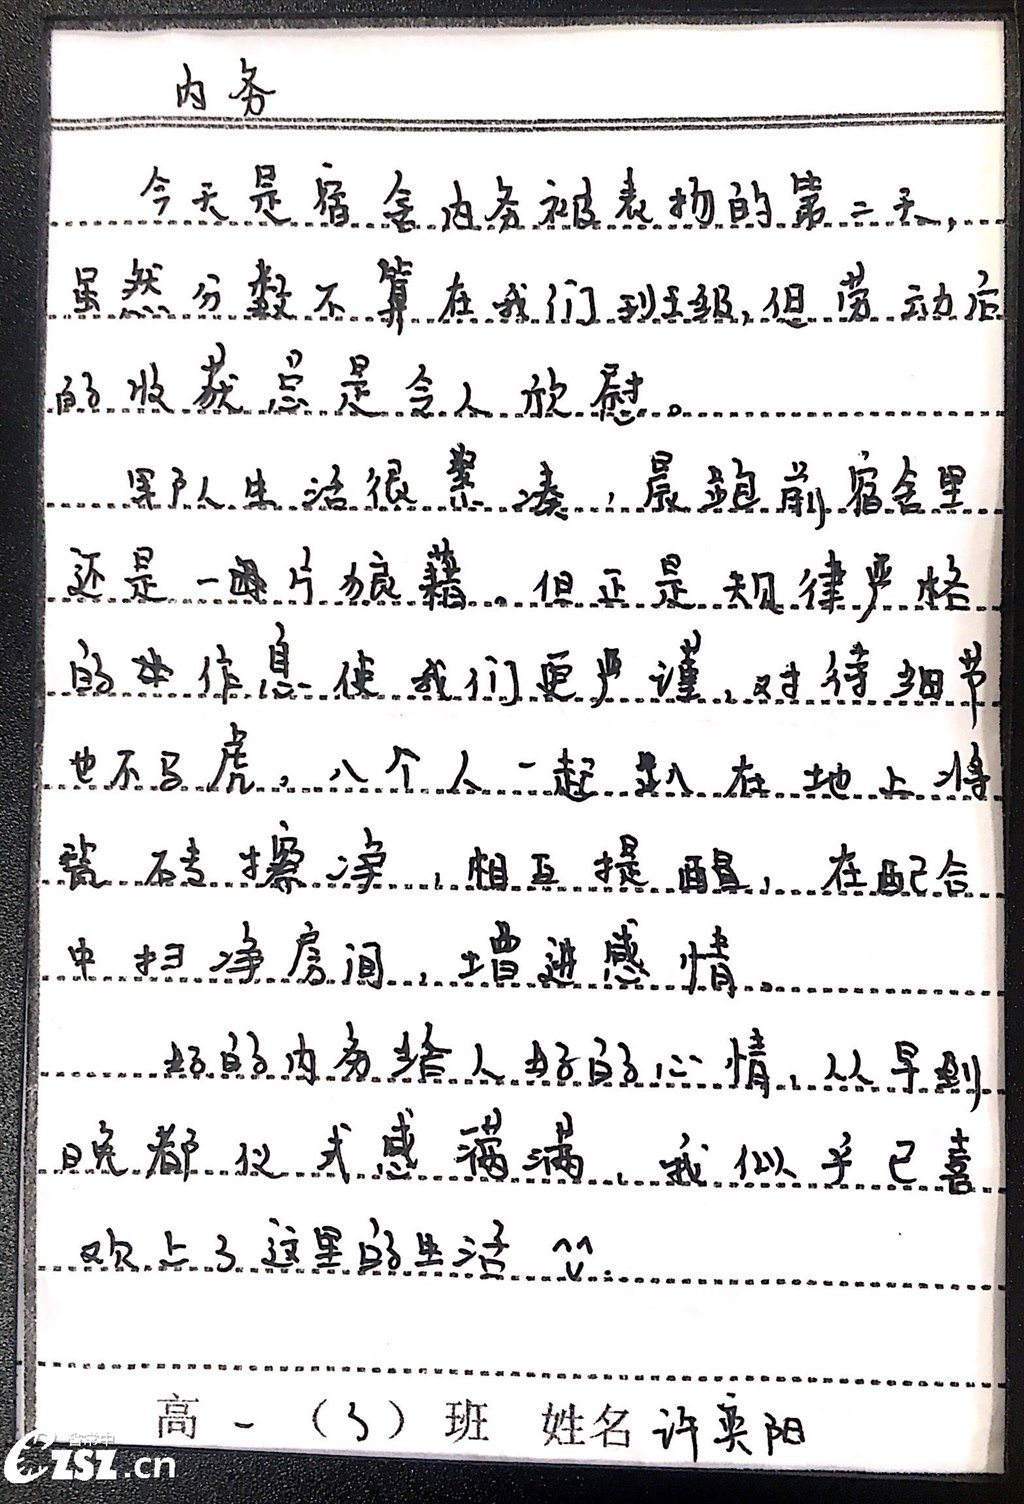 内务
今天是宿舍内务被表扬的第二天，
虽然分数不算在我们班级，但劳动后
的收获总是令人欣慰。
军队生活很紧凑，晨跑前宿舍里
还是一片狼藉。但正是规律严格
的作息使我们更严谨，对待细节
也不马虎，八个人一起趴在地上将
瓷砖擦净，相互提醒，在配合
中扫净房间，增进感情。
好的内务给人好的心情，从早到
晚都仪式感满满，我似乎已喜
欢上了这里的生活 ^^.
高一（3）班 姓名 许奕阳
CZSZ.cn